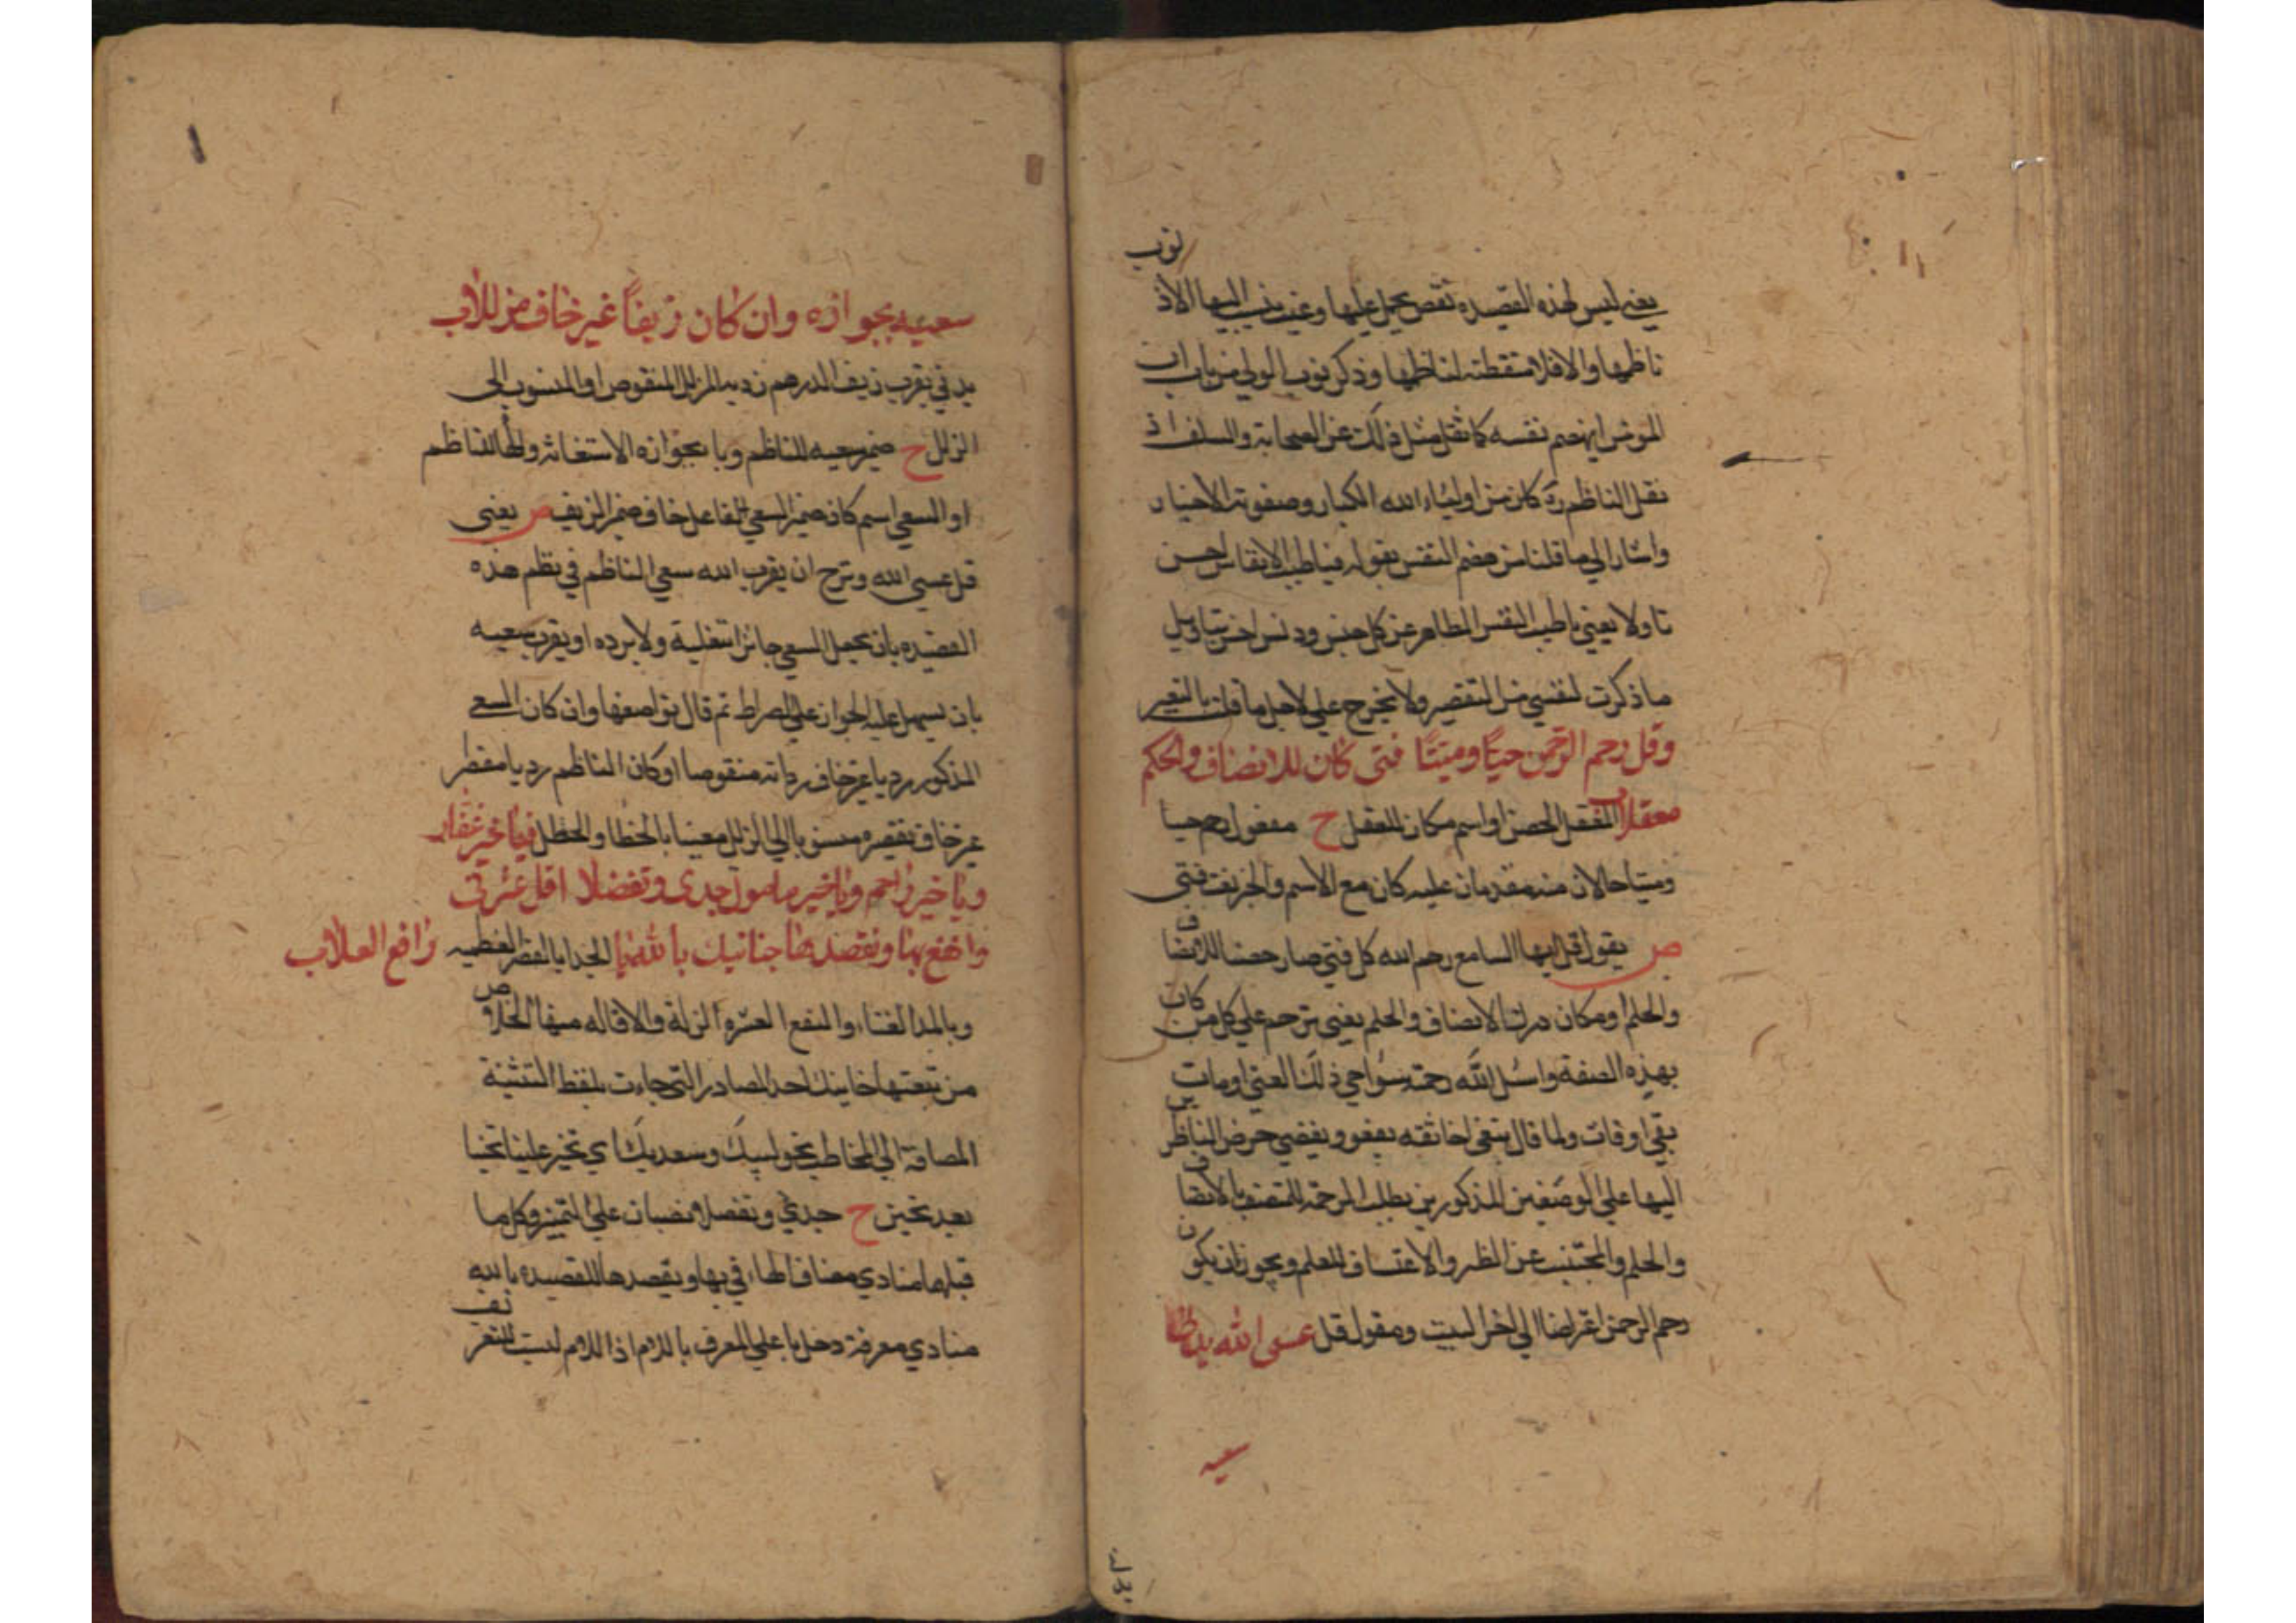 ذنوب
يعني ليس لهذه القصيدة نقص يحمل عليها وعيب ينسب اليها الا ذ
ناظمها والا فلا منقطة لناظمها وذكر ذنوب الولي من باب ان
المومن يهضم نفسه كما نقل مثل ذلك عن الصحابة والسلف اذ
نقل الناظم ره كان من اولياء الله الكبار وصفوته الاخيار
واشار الي ما قلنا من هضم النفس بقوله فيا طيب الانفاس احسن
تاولا يعني يا طيب النفس الطاهر عن كل جنس ودنس احسن بتاويل
ما ذكرت لنفسي من التقصير ولا تخرج علي لاجل ما قلت بالتعيير
وقل رحم الرحمن حيًا وميتًا فتى كان للانصاف والحلم
معقلا المعقل الحصن او اسم مكان للعقل ح مفعول رحم حيا
وميتا حالان منه مقدمان عليه كان مع الاسم والخبر نعت فتى
ص يقول قل ايها السامع رحم الله كل فتي صار حصنا للانصاف
والحلم او مكان درك الانصاف والحلم يعني ترحم علي كل من كان
بهذه الصفة واسئل الله رحمته سوا حي ذلك الفتي او مات
بقي او فات ولما قال يتغي اخا ثقه يعفو ويغضي حرض الناظرين
اليها علي الوصفين المذكورين بطلب الرحمة للمتصف بالانصاف
والحلم والمجتنب عن الظلم والاعتساف للعلم ويجوز ان يكون
رحم الرحمن اعتراضا الي اخر البيت ومقول قل عسى الله يدني
سعيه
سعيه بجوازه وان كان زيفًا غير خاف مزللا ب
يدني يقرب زيف الدرهم رديه المزلل المنقوص او المنسوب الي
الزلل ح ضمير سعيه للناظم وبا بجوازه الاستعانة ولها للناظم
او السعي اسم كان ضمير السعي الفاعل خاف ضمير الزيف ص يعني
قل عسي الله وترج ان يقرب الله سعي الناظم في نظم هذه
القصيده بان يجعل السعي جائزا بتغليبه ولا يرده او يقرب سعيه
بان يسهل عليه الجواز علي الصراط ثم قال تواضعا وان كان السعي
المذكور رديا غير خاف رداته منقوصا او كان الناظم رديا مقصر
غير خاف تقصيره منسوبا الي الزلل معيبا بالخطا والخطل فيا خير غفار
ويا خير راحم ويا خير مامول جدى وتفضلا اقل عثرتي
وانفع بها وبقصدها حنانيك يا الله يا رافع العلا ب الجدا بالقصر العطيه
وبالمد الغناء والنفع العثره الزلة والاقاله منها الخلاص
من تبعتها حنانيك احد المصادر التي جاءت بلفظ التثنية
المضافة الي المخاطب نحو لبيك وسعديك اي تحنن علينا تحننا
بعد تحنن ح جدي وتفضلا نصبان علي التمييز وكل ما
قبلها منادي مضاف الهاء في بها وبقصدها للقصيده يا الله
منادي معرفة دخل يا علي المعرف باللام اذ اللام ليست للتعريف